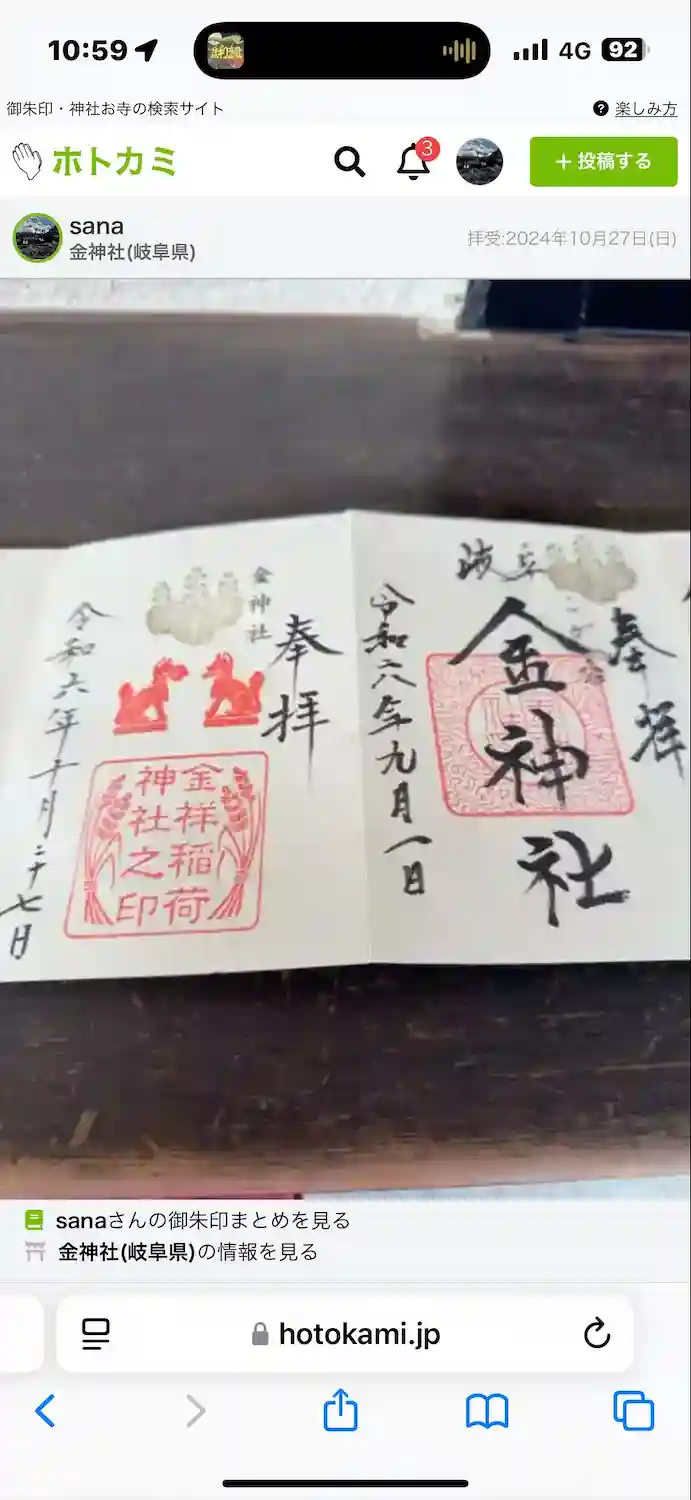 10:59
4G
92
御朱印・神社お寺の検索サイト
? 楽しみ方
ホトカミ
3
+ 投稿する
sana
金神社(岐阜県)
拝受:2024年10月27日(日)
奉拝
金神社
九月一日
奉拝
金神社
金祥稲荷
神社之印
令和六年十月二十七日
sanaさんの御朱印まとめを見る
金神社(岐阜県)の情報を見る
hotokami.jp